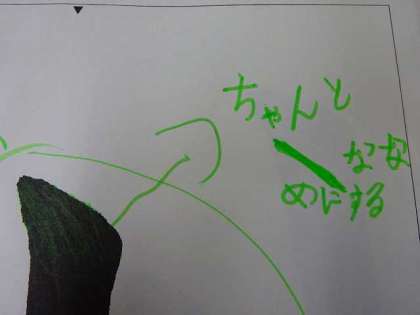 ちゃんと
なな
めにする